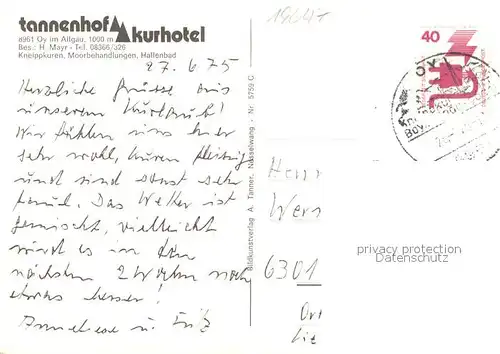 tannenhof kurhotel
8961 Oy im Allgäu, 1000 m
Bes.: H. Mayr · Tel. 08366/326
Kneippkuren, Moorbehandlungen, Hallenbad
27. 6. 75
Herzliche Grüsse aus
unserem Kurlaub!
Wir fühlen uns hier
sehr wohl, kuren fleissig
und sind sonst sehr
faul. Das Wetter ist
gemischt, vielleicht
wird es in den
nächsten 2 Wochen noch
etwas besser!
Anneliese u. Fritz
Bildkunstverlag A. Tanner, Nesselwang Nr. 5759 C
40
OY
Herr
Wern
6301
privacy protection
Datenschutz